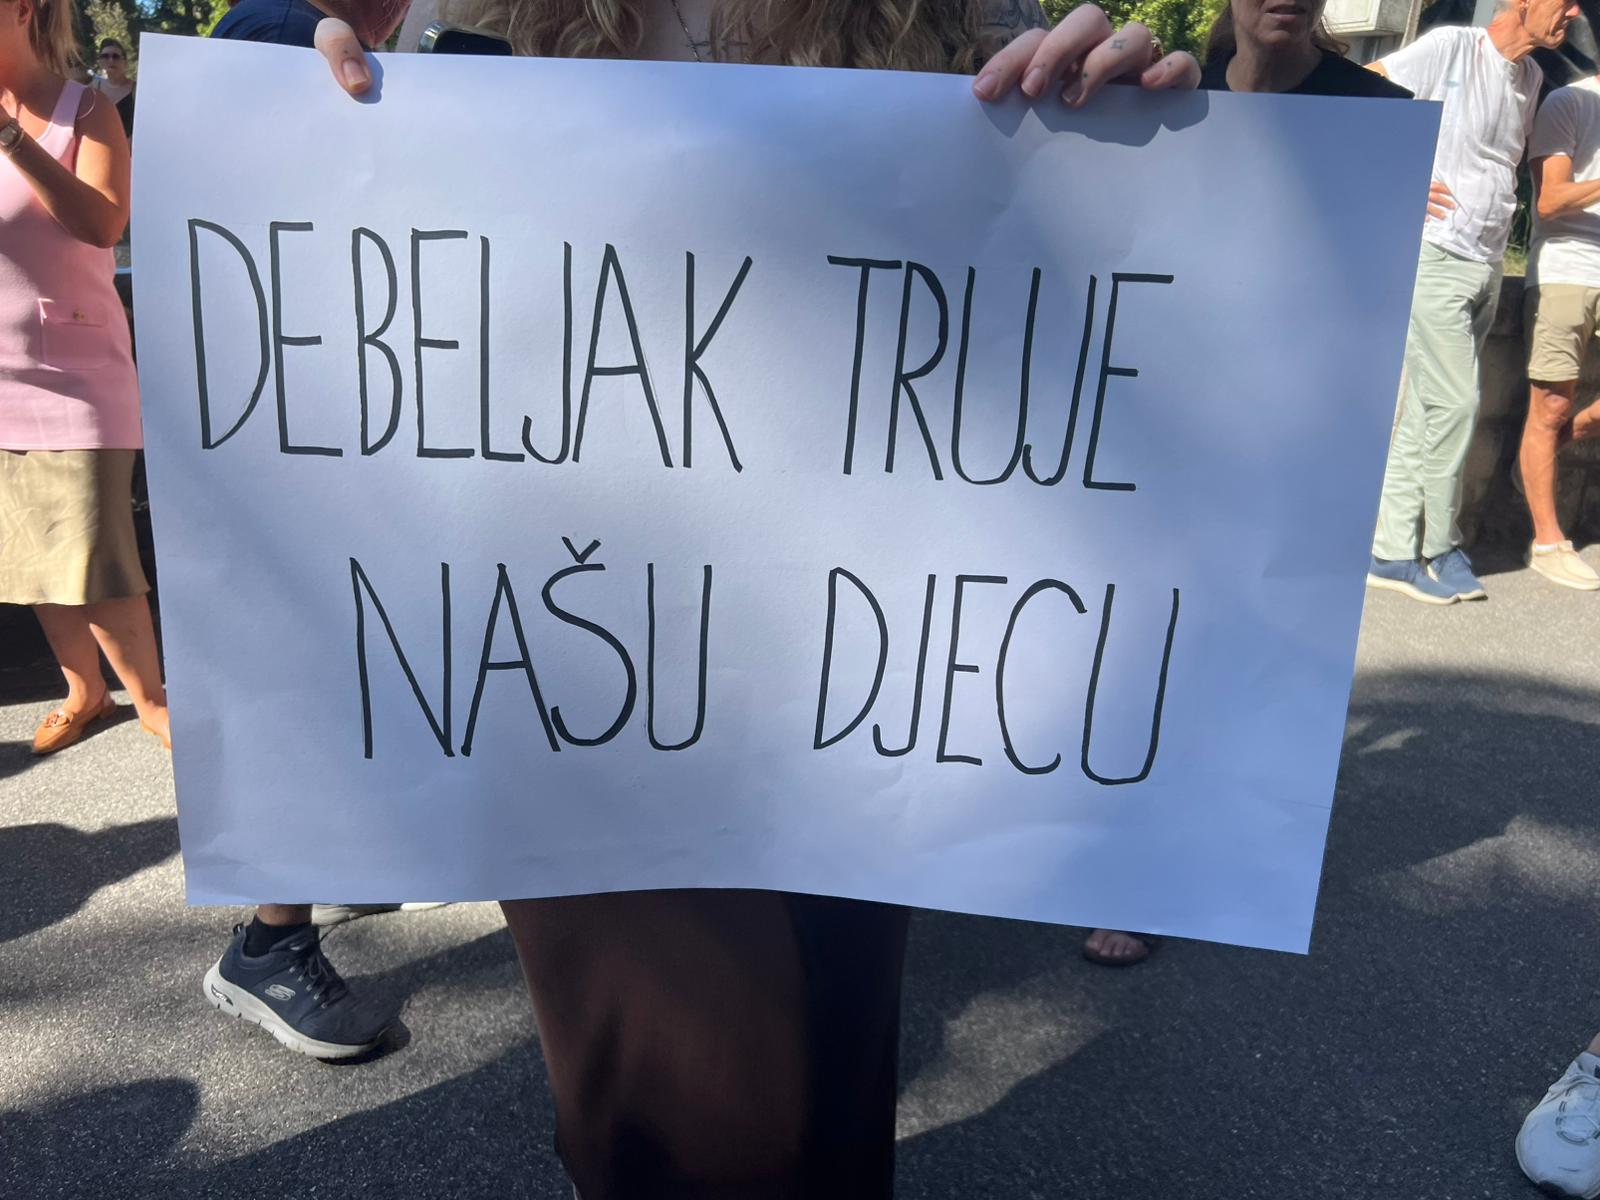 DEBELJAK TRUJE
NAŠU DJECU